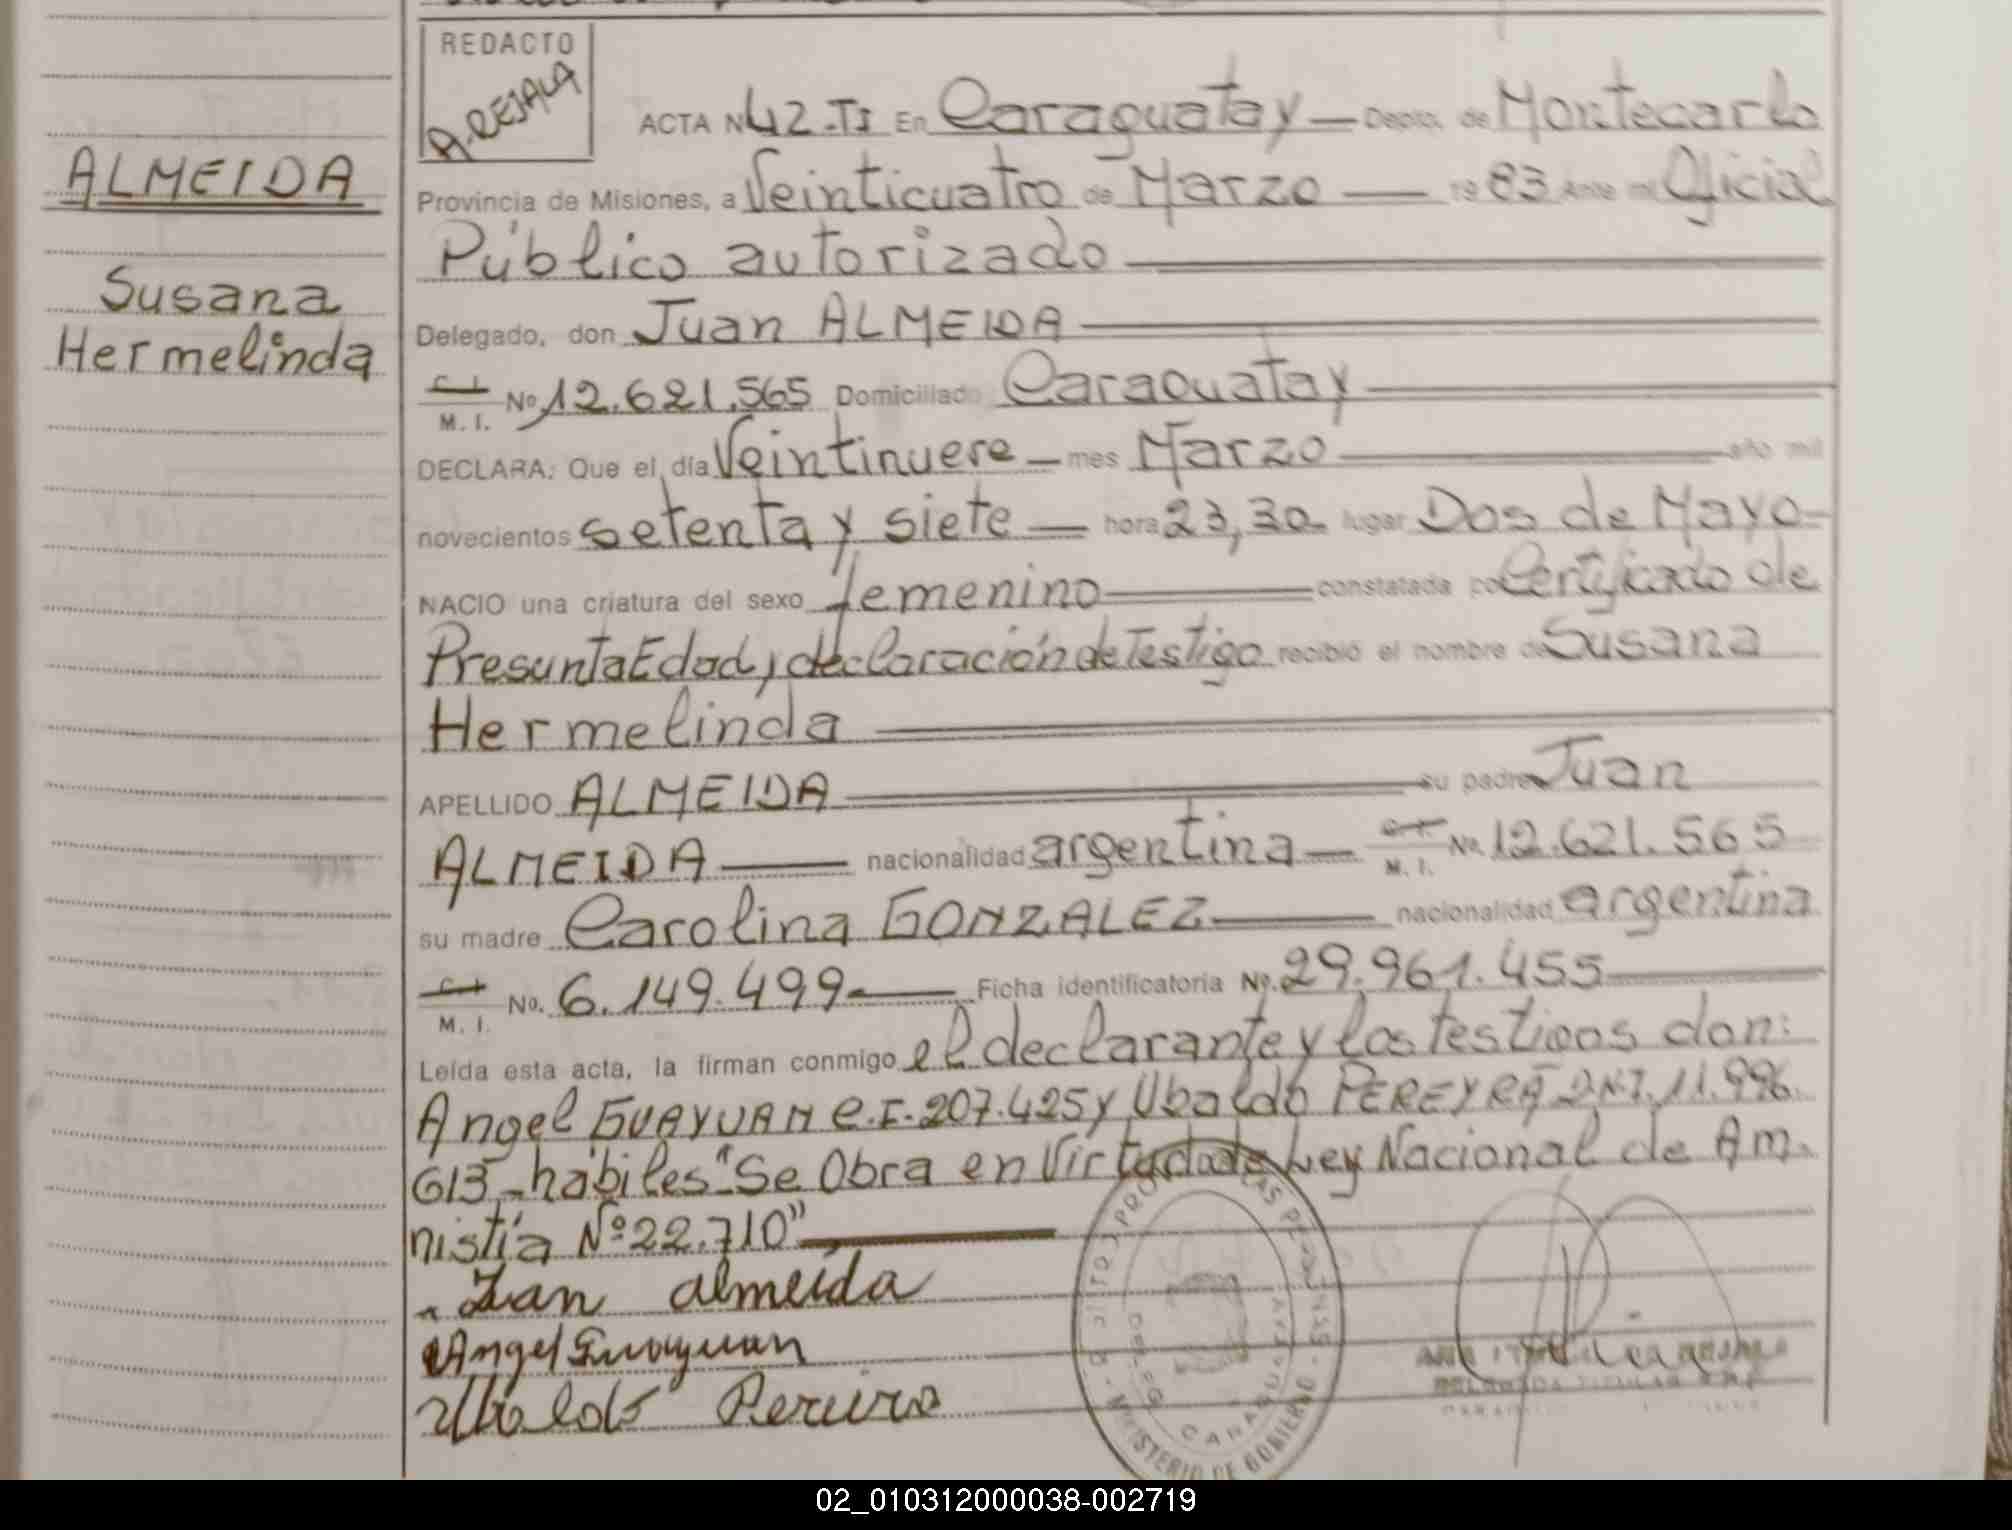 REDACTO
A. REJALA
ALMEIDA
Susana
Hermelinda
ACTA Nº 42-TI En Caraguatay — Depto. de Montecarlo
Provincia de Misiones, a Veinticuatro de Marzo — 1983 Ante mi Oficial
Público autorizado
Delegado, don Juan ALMEIDA
C.I. M.I. Nº 12.621.565 Domiciliado Caraguatay
DECLARA: Que el día Veintinueve — mes Marzo — año mil
novecientos setenta y siete — hora 23,30 lugar Dos de Mayo
NACIO una criatura del sexo femenino — constatada por Certificado de
Presunta Edad, declaración de Testigo recibió el nombre de Susana
Hermelinda
APELLIDO ALMEIDA — su padre Juan
ALMEIDA — nacionalidad argentina — C.I. M.I. No. 12.621.565
su madre Carolina GONZALEZ — nacionalidad argentina
C.I. M.I. No. 6.149.499 — Ficha identificatoria Nº. 29.961.455
Leída esta acta, la firman conmigo el declarante y los testigos don:
Angel GUAYUAN C.I. 207.425 y Ubaldo PEREYRA DNI. 11.996.
613 - hábiles "Se Obra en Virtud de la Ley Nacional de Am-
nistía Nº 22.710"
Juan almeida
Angel Guayuan
Ubaldo Pereira
MINISTERIO DE GOBIERNO
CARAGUATAY
02_010312000038-002719